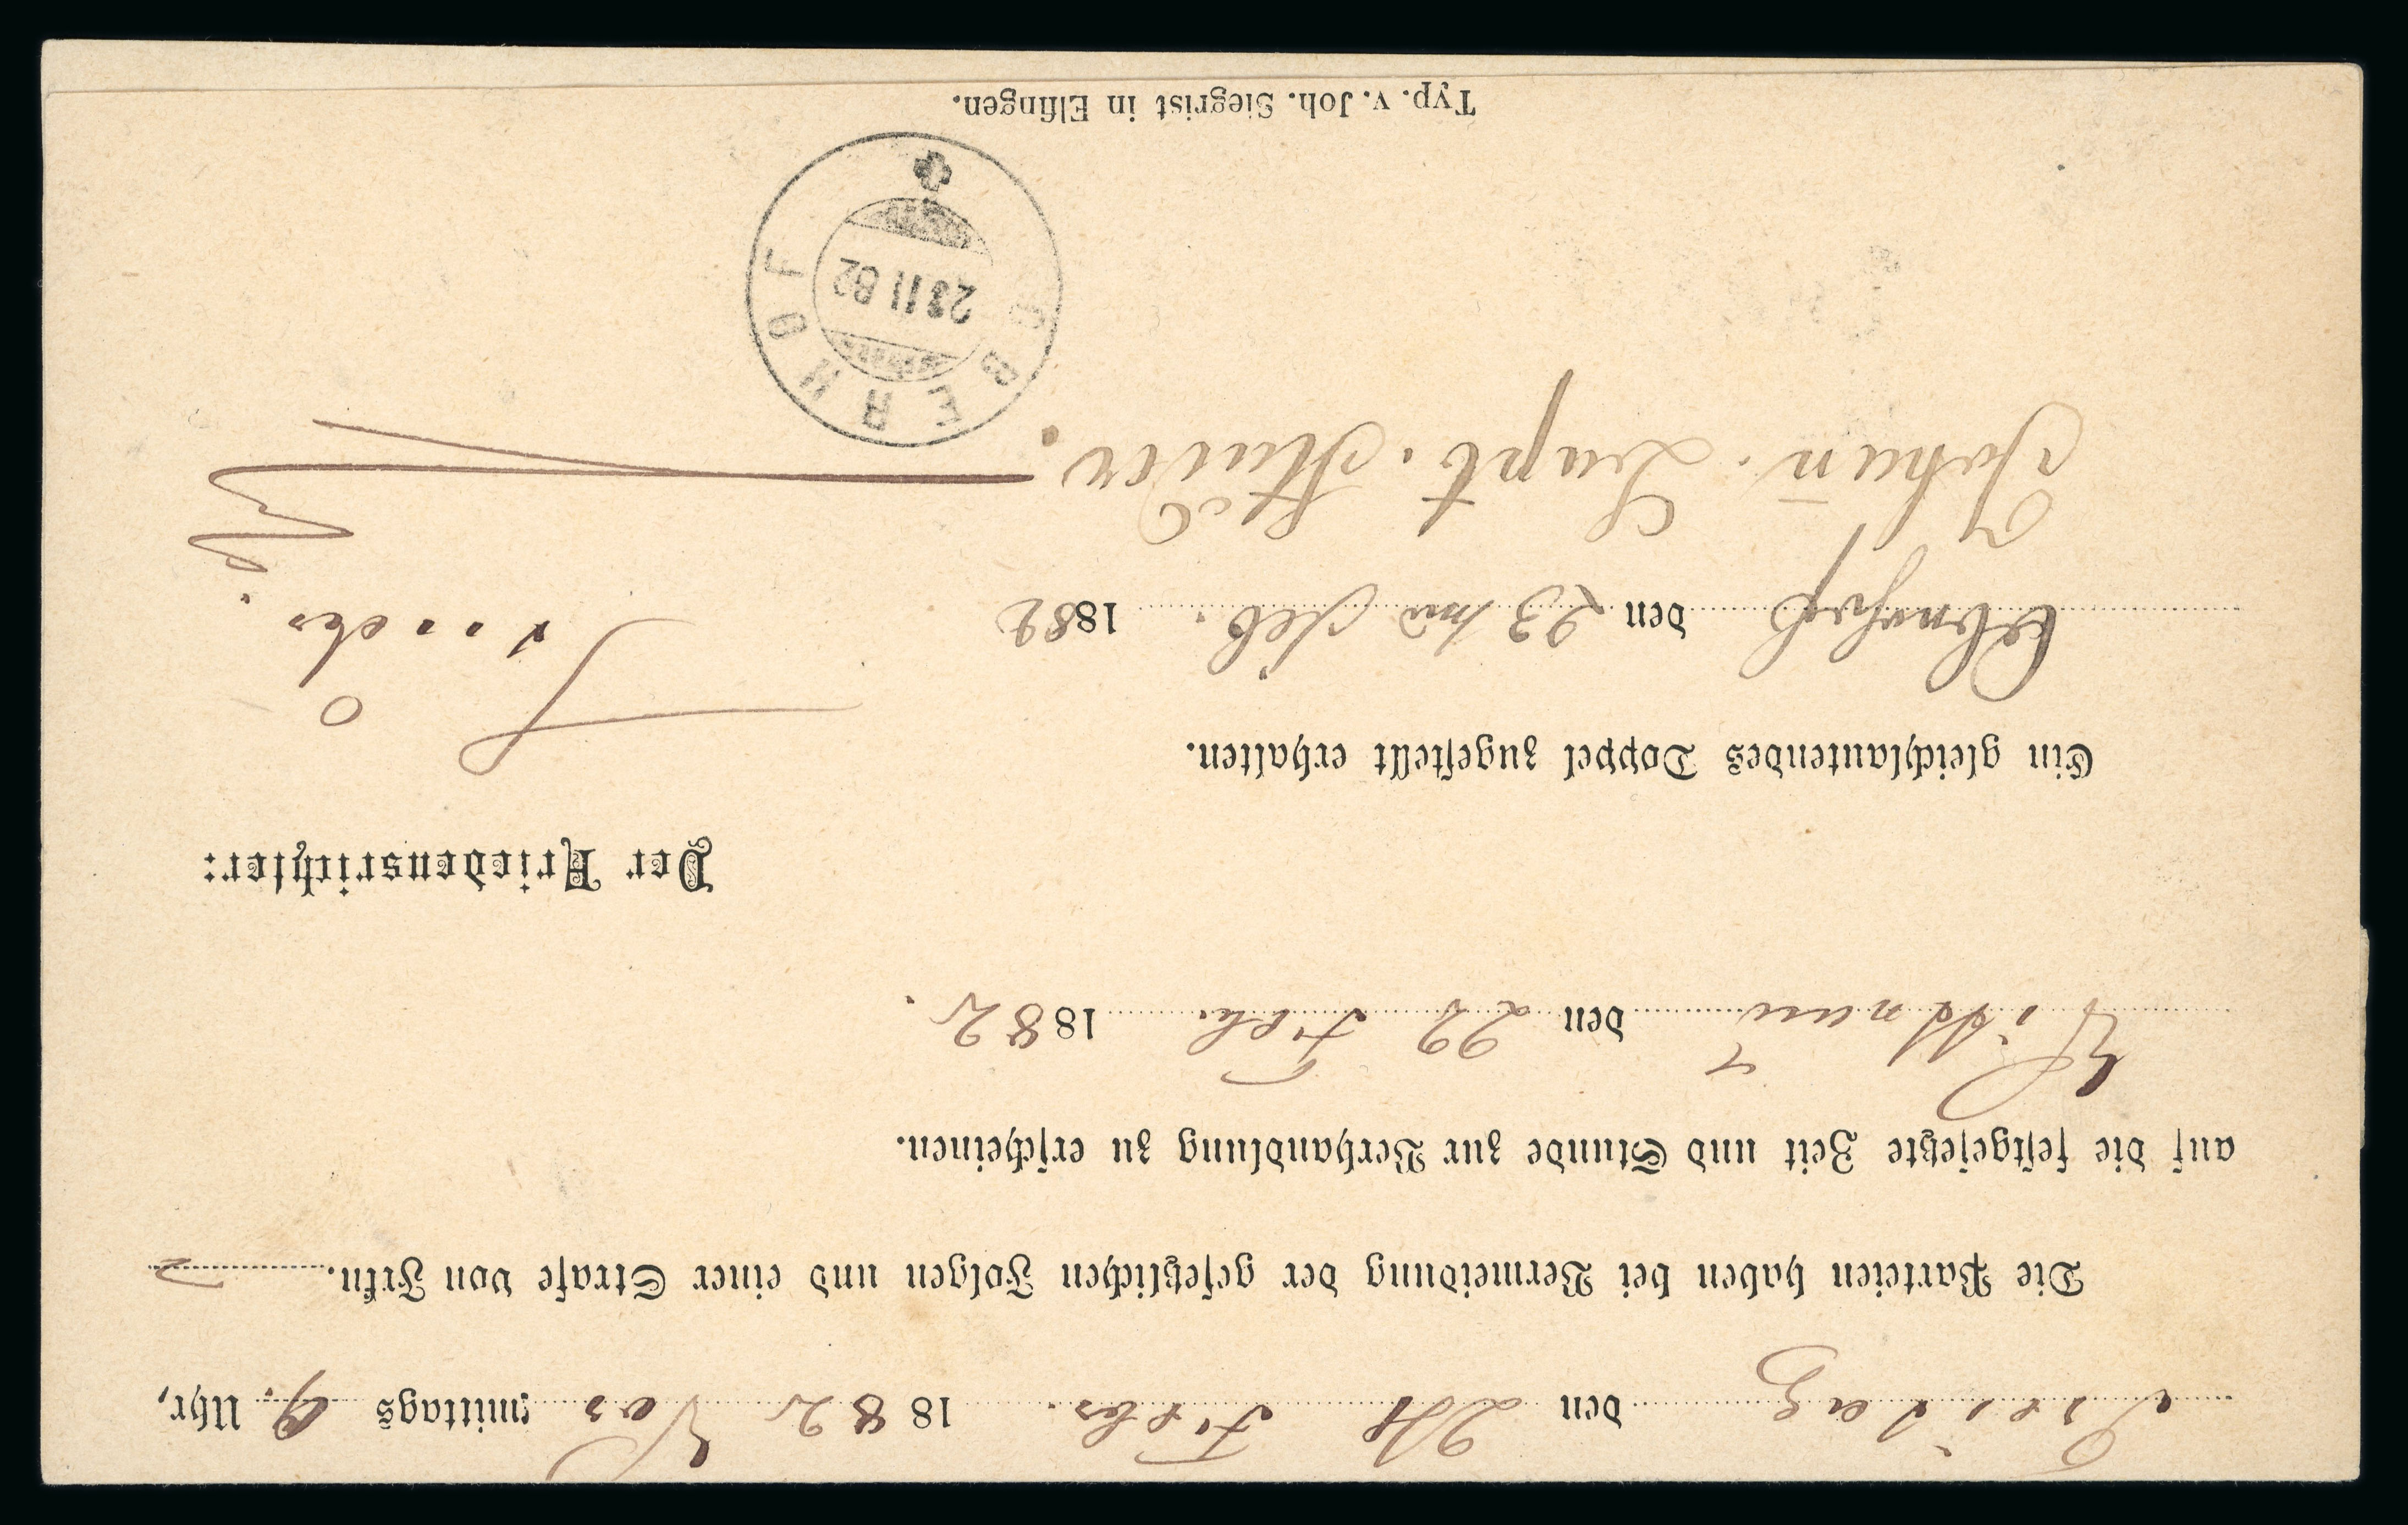 Freitag den 24 Febr. 1882 Vormittags 9. Uhr,
Die Parteien haben bei Vermeidung der gesetzlichen Folgen und einer Strafe von Frkn. 2
auf die festgesetzte Zeit und Stunde zur Verhandlung zu erscheinen.
Wittnau den 22 Feb. 1882.
Der Friedensrichter:
Ein gleichlautendes Doppel zugestellt erhalten.
den 23 Feb. 1882
Johan̄.
OBERHOF
23 II 82
Typ. v. Joh. Siegrist in Elfingen.